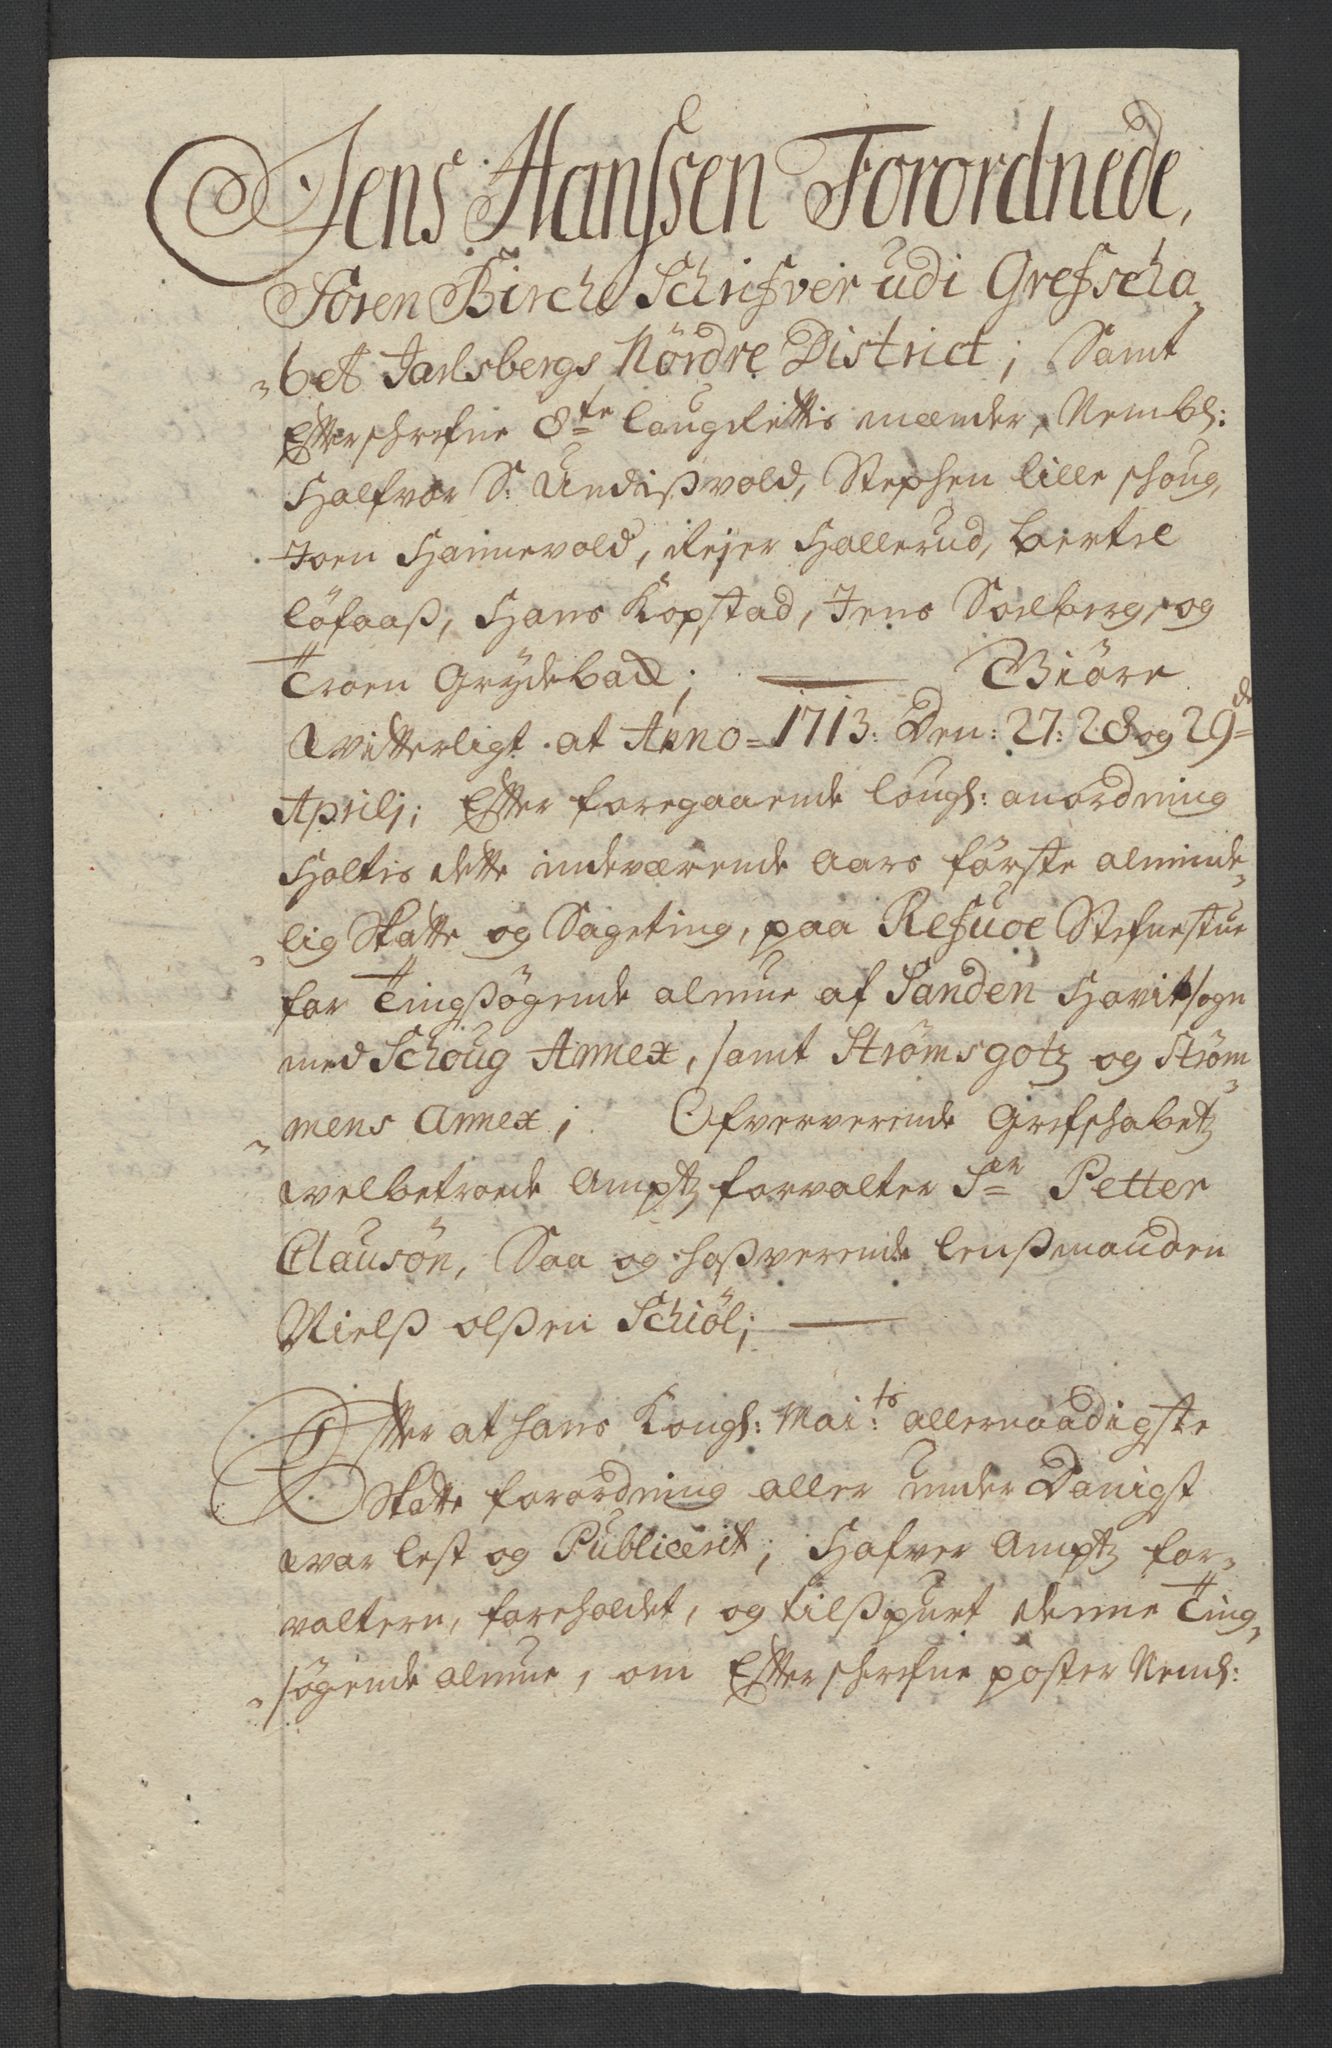 Jens Hanssen Forordnede,
Soren Birche Schrifver udi Grefscha¬
bet Jarlsbergs Nördre District; Samt
Effterschrefne 8te laugRettis mænder, Nembl:
Halfvor S: Undisvold, Stephen lille schoug,
Joen Hannevold, Rejer Hallerud, bertel
löfaaß, Hans Kopstad, Jens Solberg, og
Troen Grydebad; Giöre
witterligt at Anno 1713: Den: 27: 28 og 29de
Aprilj; Effter foregaaende lougl: anordning
Holtis dette indeværende aars förste alminde¬
lig Skatte og Sageting, paa Refuoe Stefnestue
for Tingßögende almue af Sanden Hovitsogn
med Schoug Annex, samt Strømsgotz og Strøm¬
mens Annex; Ofververende Grefschabetz
welbetroede Amptz forvalter Sr Petter
Clausön, Saa og hoßverende lenßmanden
Nielß olßen Schiöl;
Effter at hans Kongl: Mai:ts allernaadigste
Skatte forordning aller under Danigst
war lest og Publicerit; Hafver Amptz for¬
valteren, foreholdet, og tilßpurt denne Ting¬
søgende almue, om Effterschrefne poster Neml: